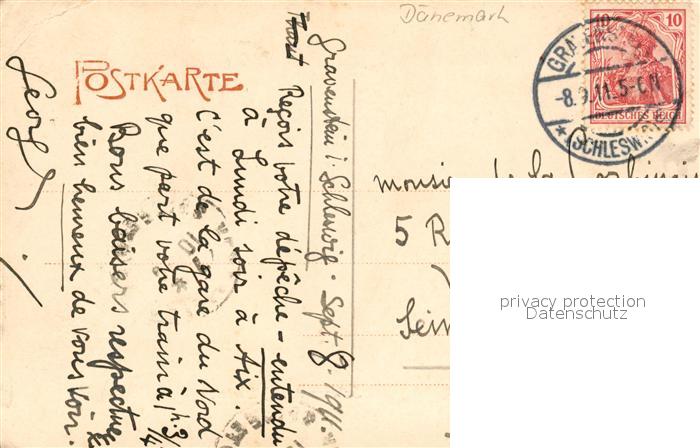 Dänemark
POSTKARTE
10 10
DEUTSCHES REICH
-8.9.11.5-6N
Gravenstein i. Schleswig. Sept. 8. 1911.
Reçois votre dépêche – entendu
à Lundi soir à Aix.
C'est de la gare du Nord
que part votre train à 1h.3/4
Bons baisers respectueux
bien heureux de vous voir.
Georg
monsieur de la
5 R
Sein
privacy protection
Datenschutz